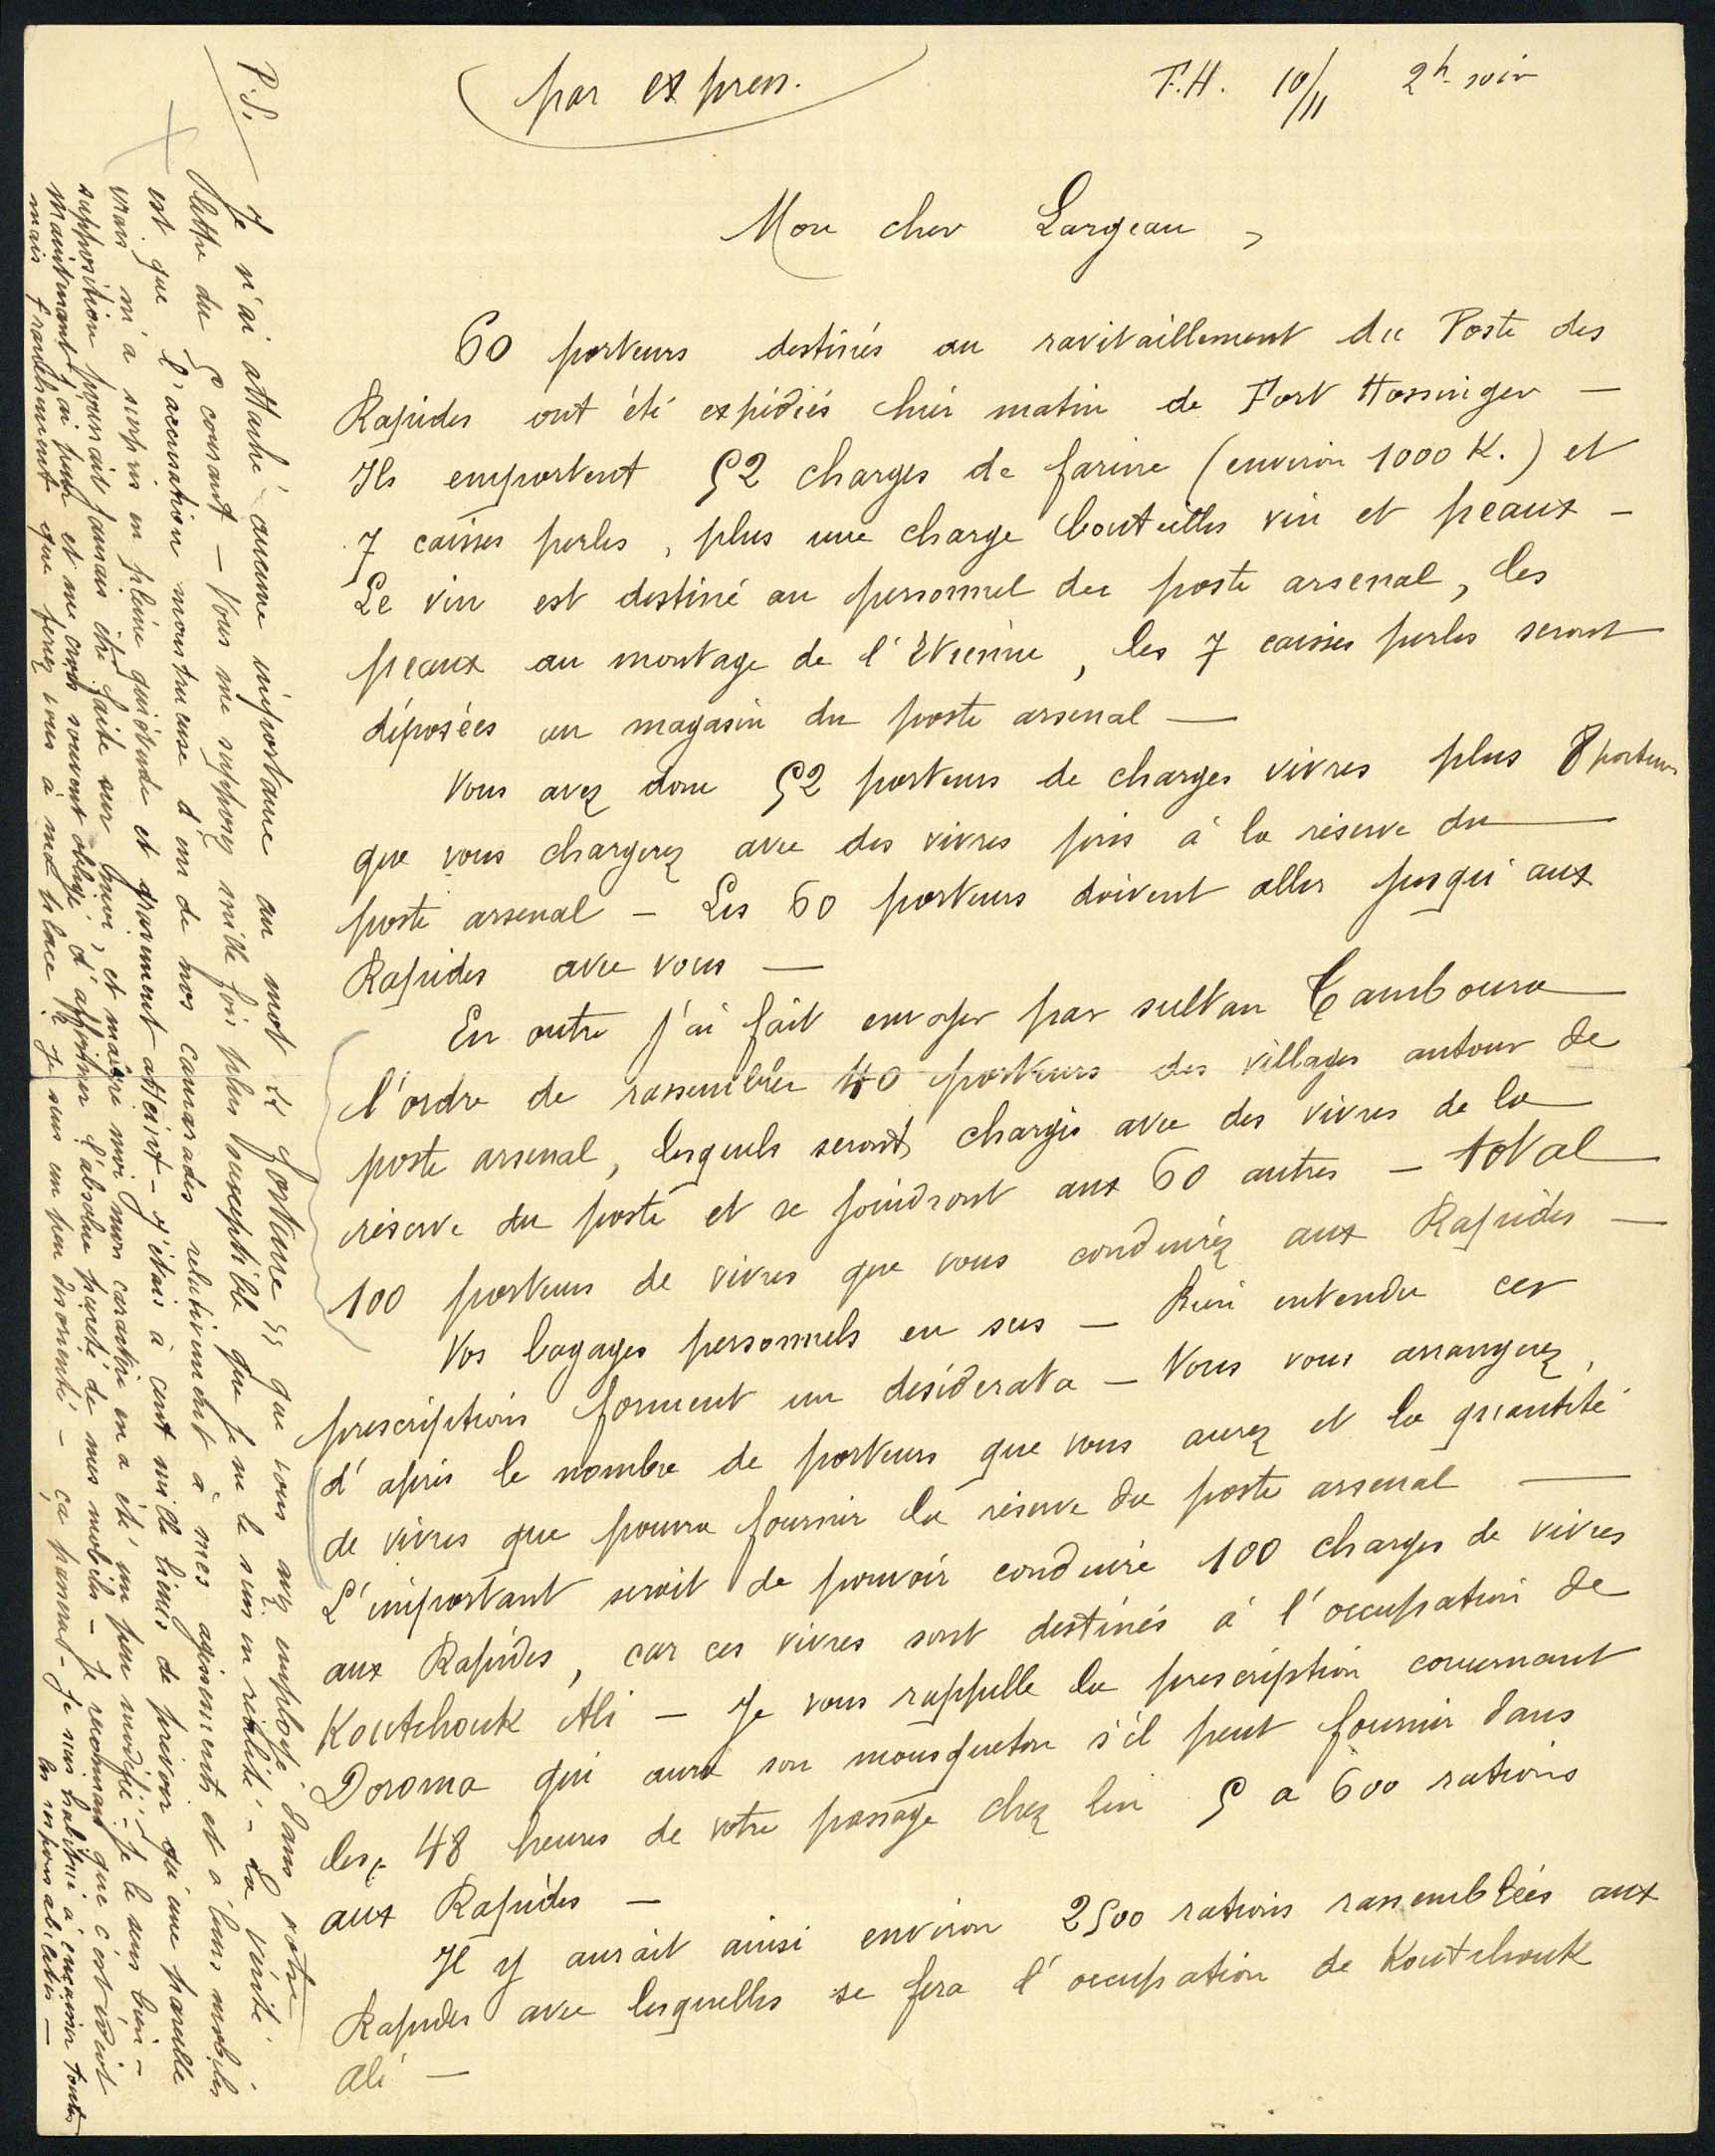 par express.
F.H. 10/11 2h soir
Mon cher Largeau,
60 porteurs destinés au ravitaillement du Poste des
Rapides ont été expédiés hier matin de Fort Hossinger —
Ils emportent 52 charges de farine (environ 1000 K.) et
7 caisses perles, plus une charge bouteilles vin et peaux —
Le vin est destiné au personnel du poste arsenal, les
peaux au montage de l'Etienne, les 7 caisses perles seront
déposées au magasin du poste arsenal —
Vous avez donc 52 porteurs de charges vivres plus 8 porteurs
que vous chargerez avec des vivres pris à la réserve du
poste arsenal — Les 60 porteurs doivent aller jusqu'aux
Rapides avec vous —
En outre j'ai fait envoyer par sultan Tamboura
l'ordre de rassembler 40 porteurs des villages autour de
poste arsenal, lesquels seront chargés avec des vivres de la
réserve du poste et se joindront aux 60 autres — total
100 porteurs de vivres que vous conduirez aux Rapides —
Vos bagages personnels en sus — Bien entendu ces
prescriptions forment un désidérata — Vous vous arrangerez,
d'après le nombre de porteurs que vous aurez et la quantité
de vivres que pourra fournir la réserve du poste arsenal —
L'important serait de pouvoir conduire 100 charges de vivres
aux Rapides, car ces vivres sont destinés à l'occupation de
Koutchouk Ali — Je vous rappelle la prescription concernant
Doroma qui aura son mousqueton s'il peut fournir dans
les 48 heures de votre passage chez lui 5 a 600 rations
aux Rapides —
Il y aurait ainsi environ 2500 rations rassemblées aux
Rapides avec lesquelles se fera l'occupation de Koutchouk
Ali —
P.S. Je n'ai attaché aucune importance au mot "torture" que vous avez employé dans votre
lettre du 5 courant — Vous me supposez mille fois plus susceptible que je ne le suis en réalité — La vérité
est que l'accusation monstrueuse d'un de nos camarades relativement à mes agissements et à leurs mobiles
vrais m'a surpris en pleine quiétude et gravement atteint — J'étais à cent mille lieues de prévoir qu'une pareille
supposition pourrait jamais être faite sur moi, et malgré moi mon caractère en a été un peu modifié — je le sens bien —
maintenant j'ai peur et me crois souvent obligé d'affirmer l'absolue pureté de mes mobiles — Je reconnais que c'est idiot
mais franchement que feriez vous à ma place ? Je suis un peu désorienté — ça passera — Je suis habitué à encaisser toutes
les responsabilités —